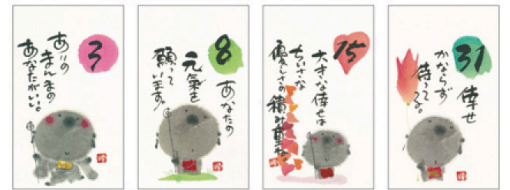 3
ありの
まんまの
あなたがいい。
8
あなたの
元気を
願って
います。
15
大きな倖せは
ちいさな
優しさの積み重ね。
31
倖せ
かならず
待ってる。